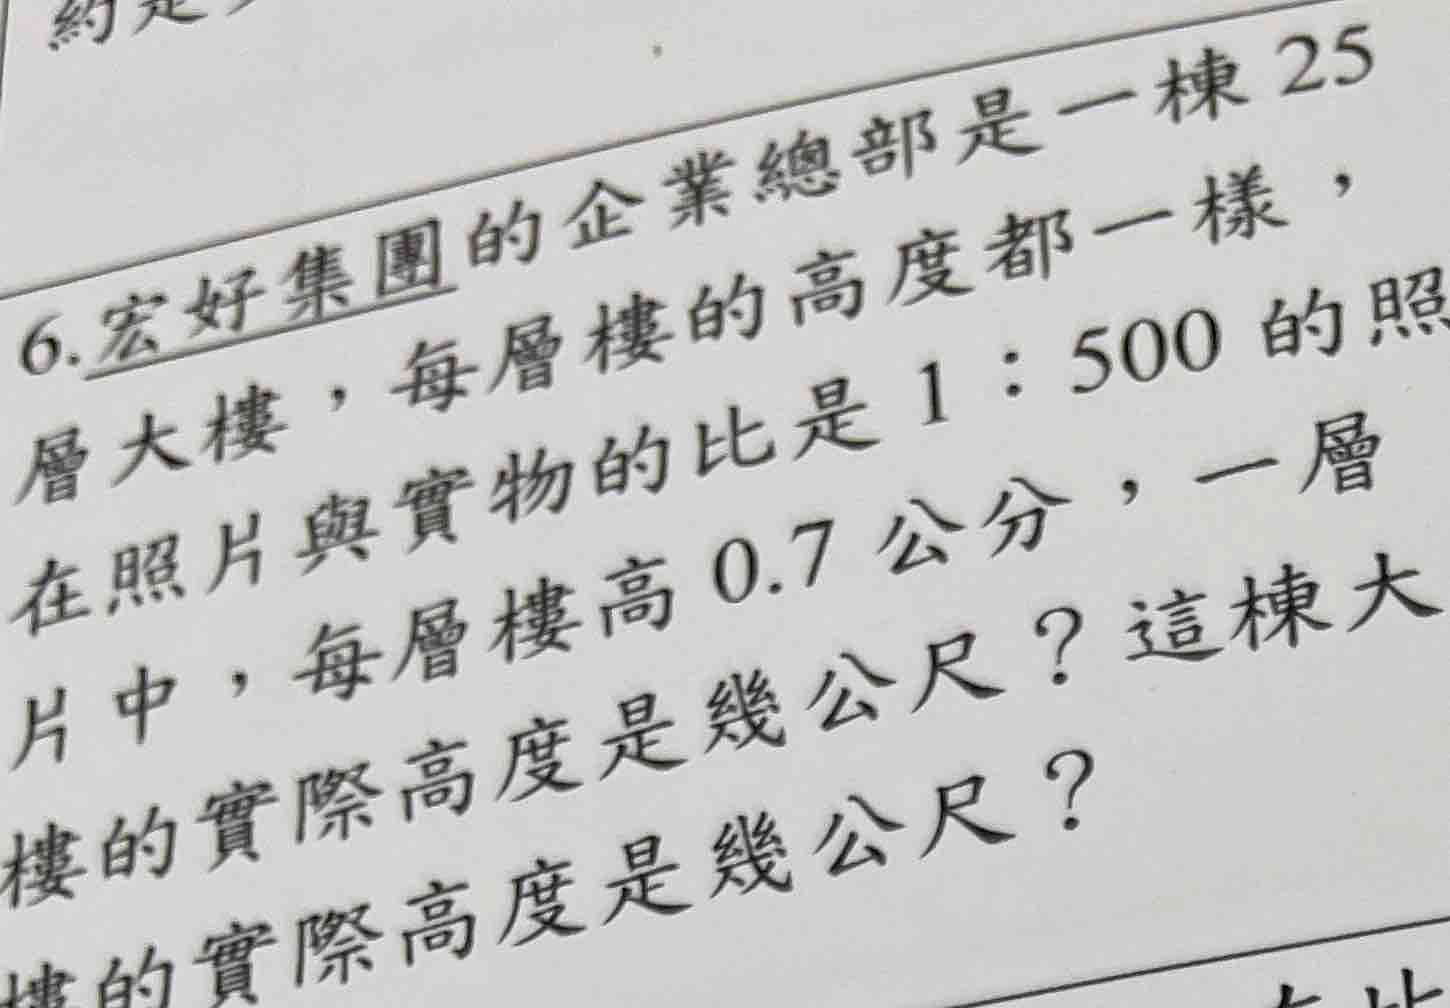 約是
6.宏好集團的企業總部是一棟 25
層大樓，每層樓的高度都一樣，
在照片與實物的比是 1：500 的照
片中，每層樓高 0.7 公分，一層
樓的實際高度是幾公尺？這棟大
樓的實際高度是幾公尺？